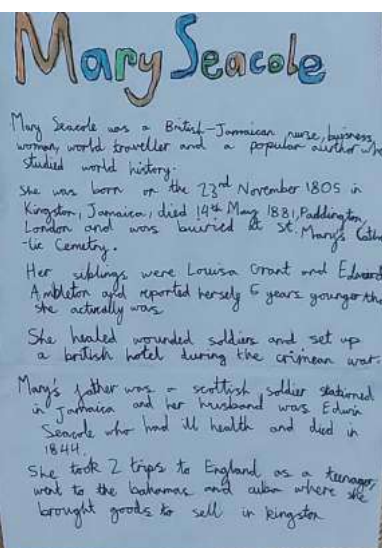 Mary Seacole
Mary Seacole was a British-Jamaican nurse, buisness
woman, world traveller and a popular author who
studied world history.
She was born on the 23rd November 1805 in
Kingston, Jamaica, died 14th May 1881, Paddington,
London and was buiried at St. Mary's Catho
-lic Cemetry.
Her siblings were Louisa Grant and Edward
Ambleton and reported hersely 5 years younger than
she actually was.
She healed wounded soldiers and set up
a british hotel during the crimean war.
Mary's father was a scottish soldier stationed
in Jamaica and her husband was Edwin
Seacole who had ill health and died in
1844.
She took 2 trips to England as a teenager,
went to the bahamas and cuba where she
brought goods to sell in kingston